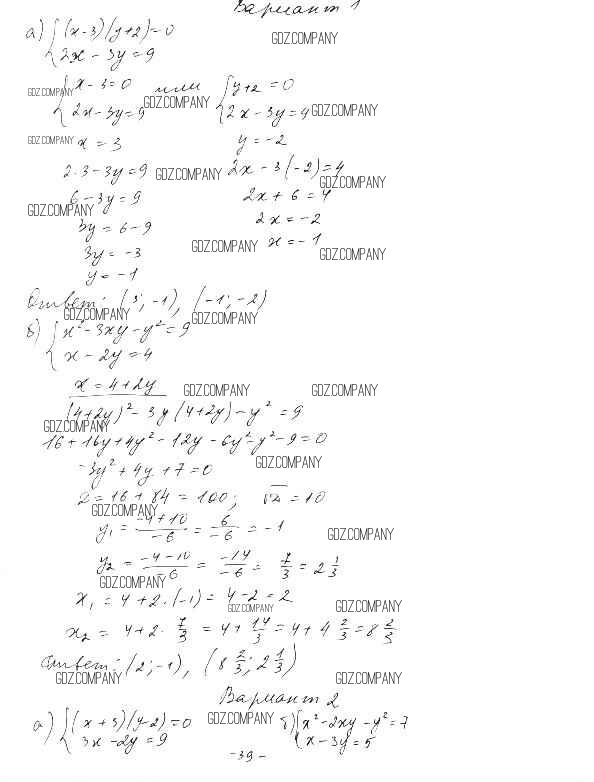 Вариант 1
а) { (x-3)(y+2)=0
GDZ.COMPANY
2x - 3y = 9
GDZ.COMPANY { x-3=0 или { y+2=0
2x-3y=9 GDZ.COMPANY 2x-3y=4 GDZ.COMPANY
GDZ.COMPANY x = 3 y = -2
2·3-3y=9 GDZ.COMPANY 2x - 3(-2)=4
GDZ.COMPANY
6-3y=9 2x+6=4
GDZ.COMPANY
3y = 6-9 2x = -2
3y = -3 GDZ.COMPANY x = -1
GDZ.COMPANY
y = -1
Ответ: (3; -1), (-1; -2)
GDZ.COMPANY GDZ.COMPANY
б) { x²-3xy-y²=9
x - 2y = 4
x = 4+2y GDZ.COMPANY GDZ.COMPANY
(4+2y)²-3y(4+2y)-y²=9
GDZ.COMPANY
16+16y+4y²-12y-6y²-y²-9=0
-3y²+4y+7=0 GDZ.COMPANY
D=16+84=100; √D=10
GDZ.COMPANY
y₁ = (-4+10)/(-6) = 6/(-6) = -1
GDZ.COMPANY
y₂ = (-4-10)/(-6) = (-14)/(-6) = 7/3 = 2 1/3
GDZ.COMPANY
x₁ = 4+2·(-1) = 4-2=2
GDZ.COMPANY GDZ.COMPANY
x₂ = 4+2·7/3 = 4+14/3 = 4+4 2/3 = 8 2/3
Ответ: (2;-1), (8 2/3; 2 1/3)
GDZ.COMPANY GDZ.COMPANY
Вариант 2
а) { (x+3)(y-2)=0 GDZ.COMPANY б) { x²-2xy-y²=7
3x-2y=9 x-3y=5
-39-